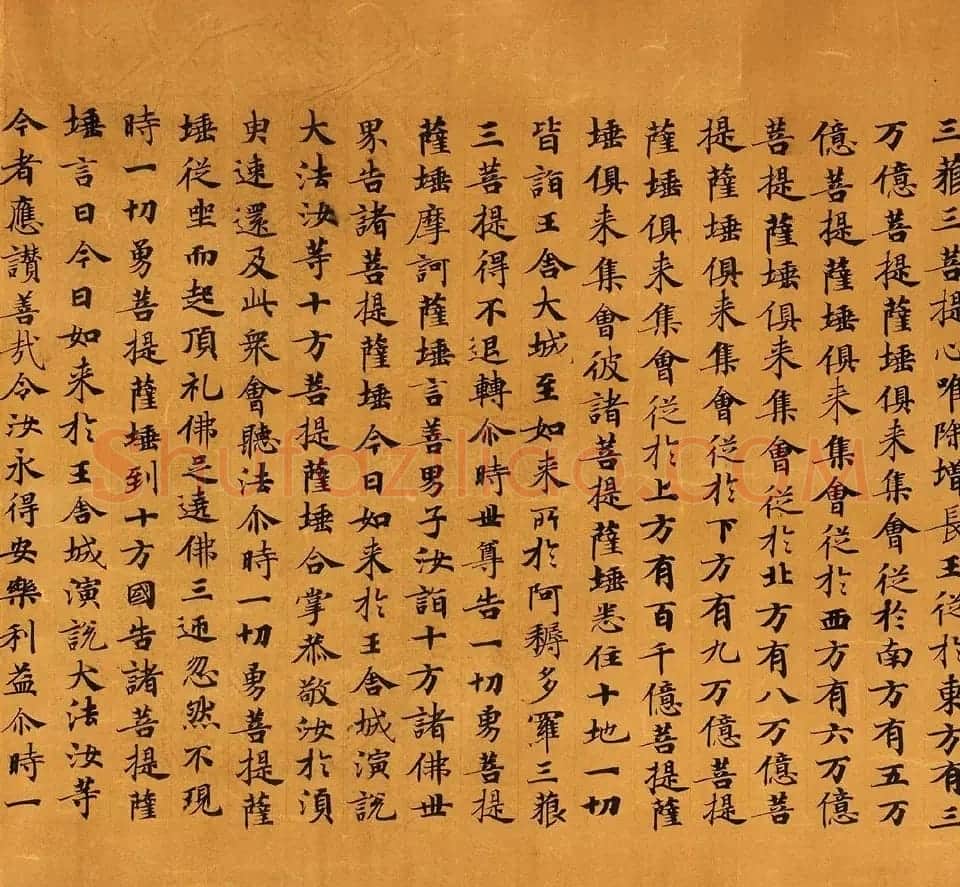 三藐三菩提心唯除增長王従扵東方有三
万億菩提薩埵俱来集會従扵南方有五万
億菩提薩埵俱来集會従扵西方有六万億
菩提薩埵俱来集會従扵北方有八万億菩
提薩埵俱来集會従扵下方有九万億菩提
薩埵俱来集會従扵上方有百千億菩提薩
埵俱来集會彼諸菩提薩埵悉住十地一切
皆詣王舍大城至如来所扵阿耨多羅三藐
三菩提得不退轉尒時世尊告一切勇菩提
薩埵摩訶薩埵言善男子汝詣十方諸佛世
界告諸菩提薩埵今日如来扵王舍城演說
大法汝等十方菩提薩埵合掌恭敬汝扵須
臾速還及此衆會聽法尒時一切勇菩提薩
埵従坐而起頂礼佛足遶佛三迊忽然不現
時一切勇菩提薩埵到十方國告諸菩提薩
埵言日今日如来扵王舍城演說大法汝等
今者應讃善哉令汝永得安樂利益尒時一
Shufaziliao.COM